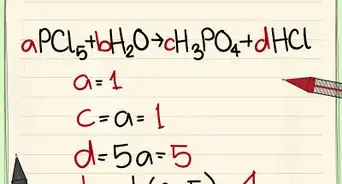 aPCl₅+bH₂O→cH₃PO₄+dHCl
a=1
c=a=1
d=5a=5